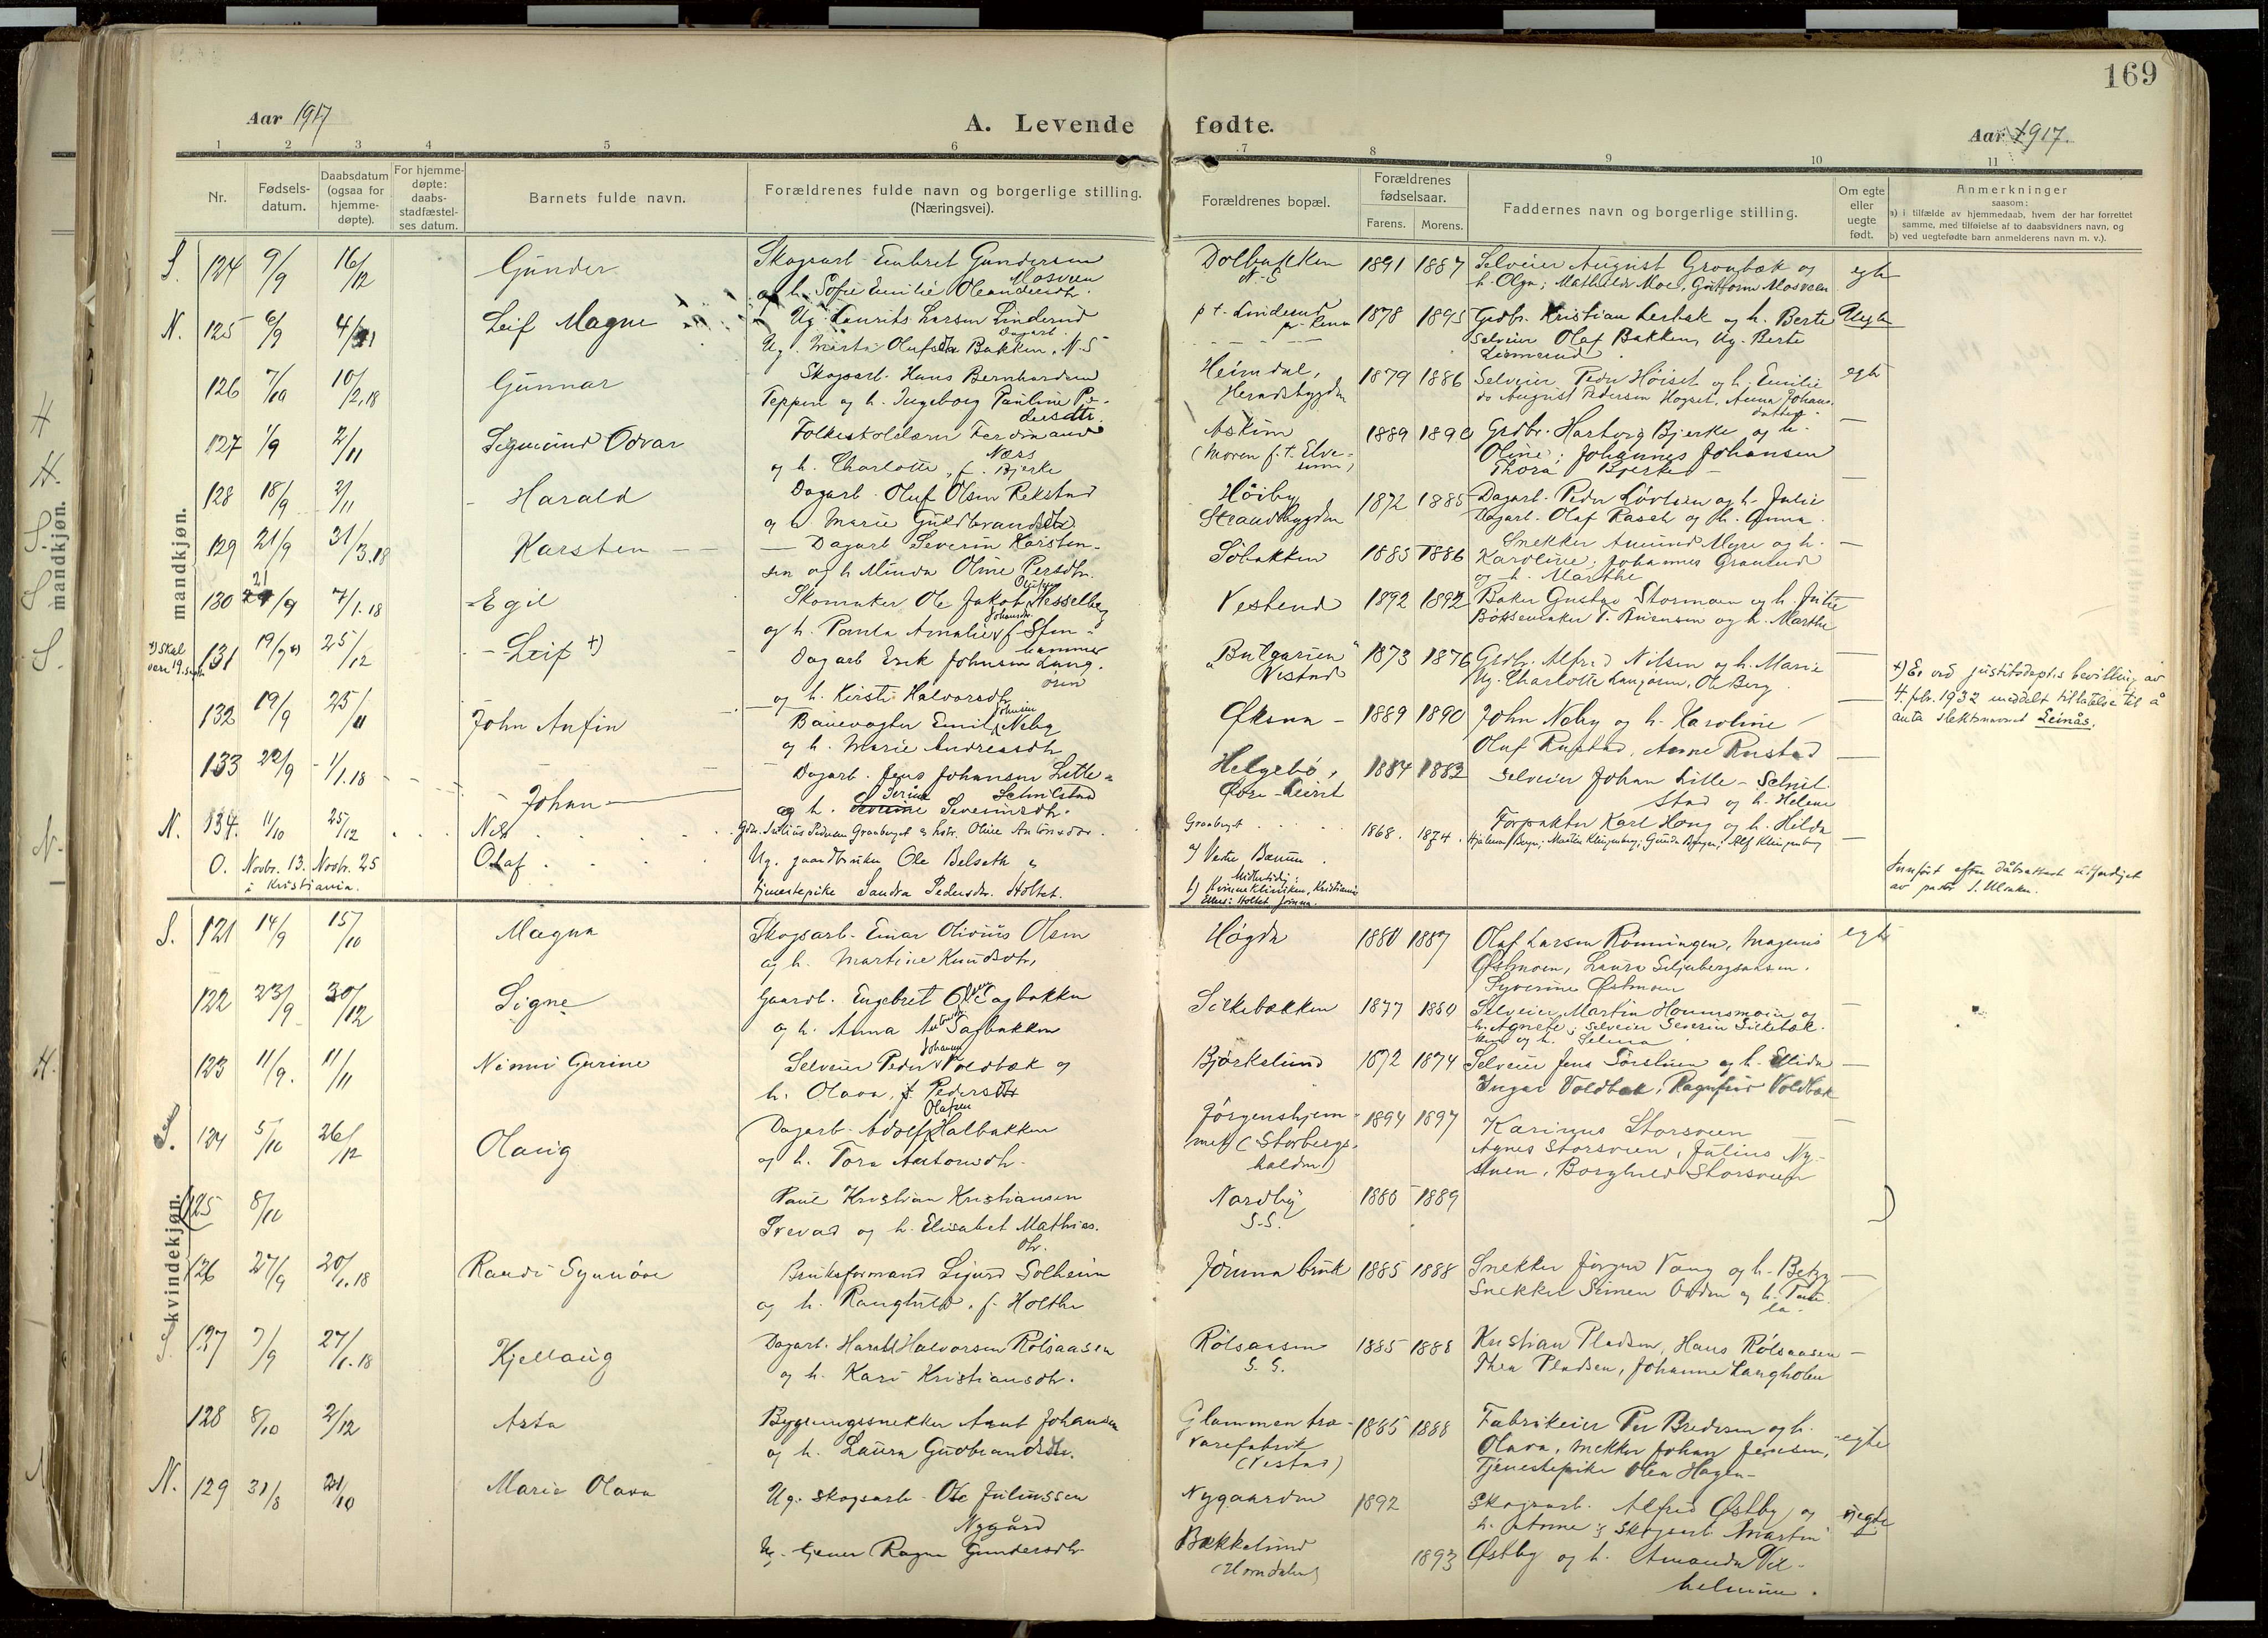 169
Aar 1917
A. Levende fødte.
Aar 1917.
1 2 3 4 5 6 7 8 9 10 11
Nr.
Fødsels-
datum.
Daabsdatum
(ogsaa for
hjemme-
døpte).
For hjemme-
døpte:
daabs-
stadfæstel-
ses datum.
Barnets fulde navn.
Forældrenes fulde navn og borgerlige stilling.
(Næringsvei).
Forældrenes bopæl.
Forældrenes
fødselsaar.
Farens. Morens.
Faddernes navn og borgerlige stilling.
Om egte
eller
uegte
født.
Anmerkninger
saasom:
a) i tilfælde av hjemmedaab, hvem der har forrettet
samme, med tilføielse af to daabsvidners navn, og
b) ved uegtefødte barn anmelderens navn m. v.).
mandkjøn.
S. 124 9/9 16/12 Gunder
Skogsarb. Embret Gundersen
Mosveen
og h. Sofie Emilie Oleandersdtr.
Dolbakken
1891 1887
Selveier August Gronbæk og
h. Olga; Mathilde Moe, Guttorm Mosveen
egte
N. 125 6/9 Leif Magne
Ug. Laurits Larsen Linderud
Dagarb.
Ug. Marta Olufsdtr Bakken. N.S
p.t. Linderud
pr. Rena
1878 1895
Grdbr. Kristian Lerbak og h. Berte
Selveier Olaf Bakken, Ug. Berte
Uegte
126 7/10 10/2.18 Gunnar
Skogsarb. Hans Bernhardsen
Teppen og h. Ingeborg Pauline Pe-
dersdtr.
Heimdal,
Hernadsbygden
1879 1886
Selveier Peder Höiset og h. Emilie
do August Pedersen Hogset, Anna Johans-
datter
egte
127 1/9 2/11 Sigmund Odvar
Folkeskolelærer Ferdinand
Næss
og h. Charlotte, f. Bjerke
Askim
(Moren p.t. Elve-
rum)
1889 1890
Grdbr. Hartvig Bjerke og h.
Oline; Johannes Johansen
Thora Bjerke
—
128 18/9 2/11 Harald
Dagarb. Oluf Olsen Rekstad
og h. Marie Guldbrandsdtr.
Höiby,
Strandbygden
1872 1885
Dagarb. Peder Lövlien og h. Julie
Dagarb. Olaf Rasch og h. Anna
—
129 21/9 31/3.18 Karsten
Dagarb. Severin Karsten-
sen og h. Minda Oline Persdtr.
Söbakken
1885 1886
Snekker Amund Myre og h.
Karoline; Johannes Granlund
og h. Marthe
—
130 21/9 7/1.18 Egil
Olufsen
Skomaker Ole Jakob Hesselberg
Johansdtr.
og h. Paula Amalie f. Sten-
hammer
Vestend
1892 1892
Baker Gustav Stormoen og h. Julie
Bössemaker T. og h. Marthe
—
+) skal
være 19. sept.
131 19/9 +) 25/12 Leif +)
Dagarb. Erik Johnsen Lang-
ören
og h. Kirsti Halvorsdtr.
"Bulgarien"
Vestad
1873 1876
Grdbr. Alfred Nilsen og h. Marie
Ug. Charlotte Langören, Ole Berg
—
+) Er ved justitsdeptes bevilling av
4. febr. 1932 meddelt tillatelse til å
anta slektsnavnet Leinås.
132 19/9 25/11 John Anfin
Johnsen
Banevogter Emil Neby
og h. Marie Andreasdtr
Øksna
1889 1890
John Neby og h. Karoline
Oluf Rustad, Anne Rustad
—
133 22/9 1/1.18 Johan
Dagarb. Jens Johansen Lille-
Schulstad
og h. Serine Severinsdtr.
Helgebö,
Øvre-Leiret
1884 1882
Selveier Johan Lille-Schul-
stad og h. Helene
—
N. 134. 11/10 25/12 Nils
Gdbr. Julius Pedersen Granberget & hstr. Oline Antonsdtr.
Granberget
1868. 1874.
Forpakter Karl Haug og h. Hilda
Hjalmar Berger; Martin Klingenberg; Gunda Berger, Alf Klingenberg
—
O. Novbr. 13. Novbr. 25
i Kristiania.
Olaf
Ug. gaardbruker Ole Belseth &
tjenestepike Sandra Pedersdtr. Holtet.
a) Vestre Bærum.
Midlertidig:
b) Kvinneklinikken, Kristiania
Ellers: Holtet Jömna.
Innført efter dåbsattest utferdiget
av pastor
kvindekjøn.
S. 121 14/9 15/10 Magna
Skogsarb. Einar Olivius Olsen
og h. Martine Knudsdtr.
Högda
1880 1887
Olaf Larsen Rönningen, Magnus
Østmoen, Laura Siljubergsaasen.
Syverine Østmoen
egte
122 23/9 30/12 Signe
Gaardb. Engebret Olsen Sagbakken
og h. Anna Antonsdtr Sagbakken
Silkebækken
1877 1880
Selveier Martin Hommsmoen og
h. Agnete; Selveier Severin Silkebæk-
ken og h. Selma
—
123 11/9. 11/11 Ninni Gurine
Johansen
Selveier Peder Voldbæk og
h. Olava, f. Pedersdtr
Bjørkelund
1872 1874
Selveier Jens Sörstuen og h. Ellida
Inger Voldbæk, Ragnfrid Voldbæk
—
S. 124 5/10 26/12 Olaug
Olafsen
Dagarb. Adolf Halbakken
og h. Tora Antonsdtr.
Jörgenshjem-
met (Storbergs-
halden)
1894 1897
Karinus Storsveen
Agnes Storsveen, Julius Ny-
stuen, Borghild Storsveen
—
(125 8/10
Paul Kristian Kristiansen
Srevad og h. Elisabet Mathias-
dtr.
Nordby
S.S.
1880 1889
)
126 27/9 20/1.18 Randi Synnöve
Bruksformand Sigurd Solheim
og h. Ranghild, f. Holthe
Jömna bruk
1885 1888
Snekker Jörgen Vang og h. Betzy
Snekker Simen Orden og h. Pau-
la.
—
S 127 7/9 27/1.18 Kjellaug
Dagarb. Harald Halvorsen Rölsaasen
og h. Kari Kristiansdtr.
Rölsaasen
S. S.
1885 1888
Kristian Pladsen, Hans Rölsaasen
Thea Pladsen, Johanne Langholen
—
128 8/10 2/12 Asta
Bygningssnekker Arnt Johansen
og h. Laura Gudbrandsdtr.
Glommen træ-
varefabrik
(Vestad)
1885 1888
Fabrikeier Per Bredesen og h.
Olava, snekker Johan Jensen,
Tjenestepike Olea Hagen
egte
N. 129 31/8 21/10 Marie Olava
Ug. skogsarb. Ole Juliussen
Nygård
Ug. tjener Ragna Gundersdtr
Nygaarden
Bækkelund
(Horndalen)
1892
1893
Skogsarb. Alfred Østby og
h. Anne; Skogsarb. Martin
Østby og h. Amanda Vil-
helmine.
uegte